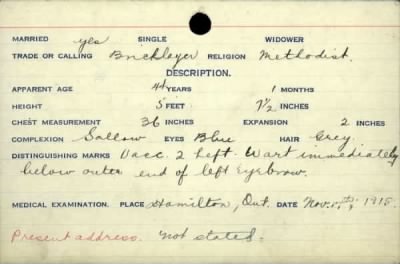 MARRIED yes SINGLE WIDOWER
TRADE OR CALLING Bricklayer RELIGION Methodist.
DESCRIPTION.
APPARENT AGE 44 YEARS 1 MONTHS
HEIGHT 5 FEET 7 1/2 INCHES
CHEST MEASUREMENT 36 INCHES EXPANSION 2 INCHES
COMPLEXION Sallow EYES Blue HAIR Grey.
DISTINGUISHING MARKS Vacc. 2 left. Wart immediately
below outer end of left Eyebrow.
MEDICAL EXAMINATION. PLACE Hamilton, Ont. DATE Nov. 1915.
Present address. not stated.